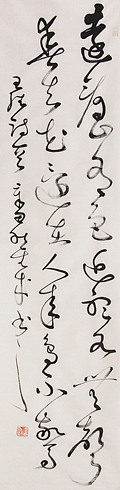 遠看山有色近聽水無聲
春去花還在人來鳥不驚
王維詩 書